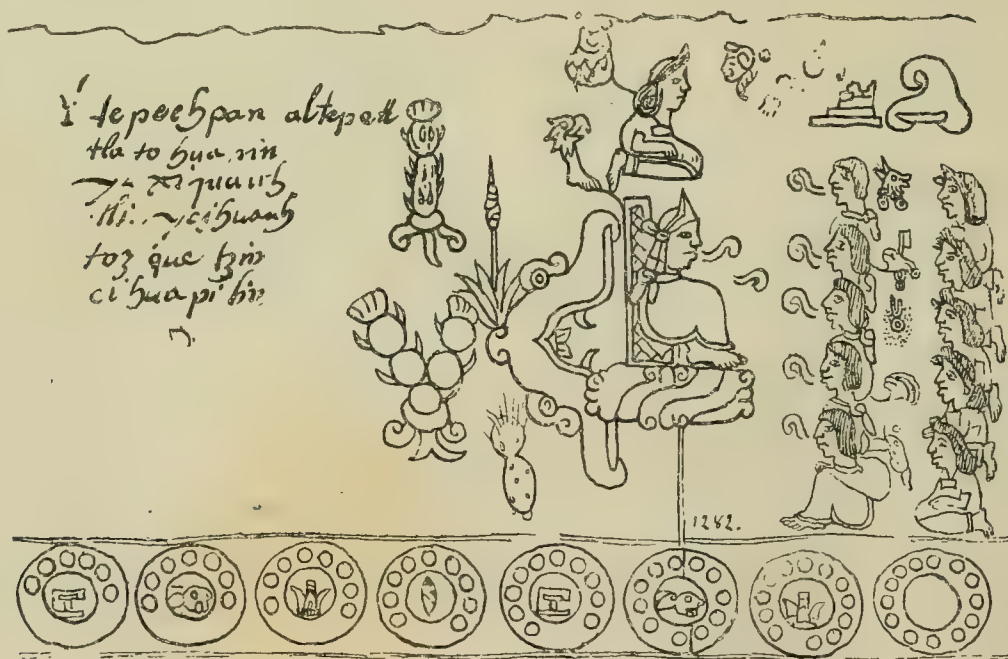 Y tepechpan altepetl
tlatohua.nin
thi. ycihuauh
toz que tzin
cihuapiltin
1282.